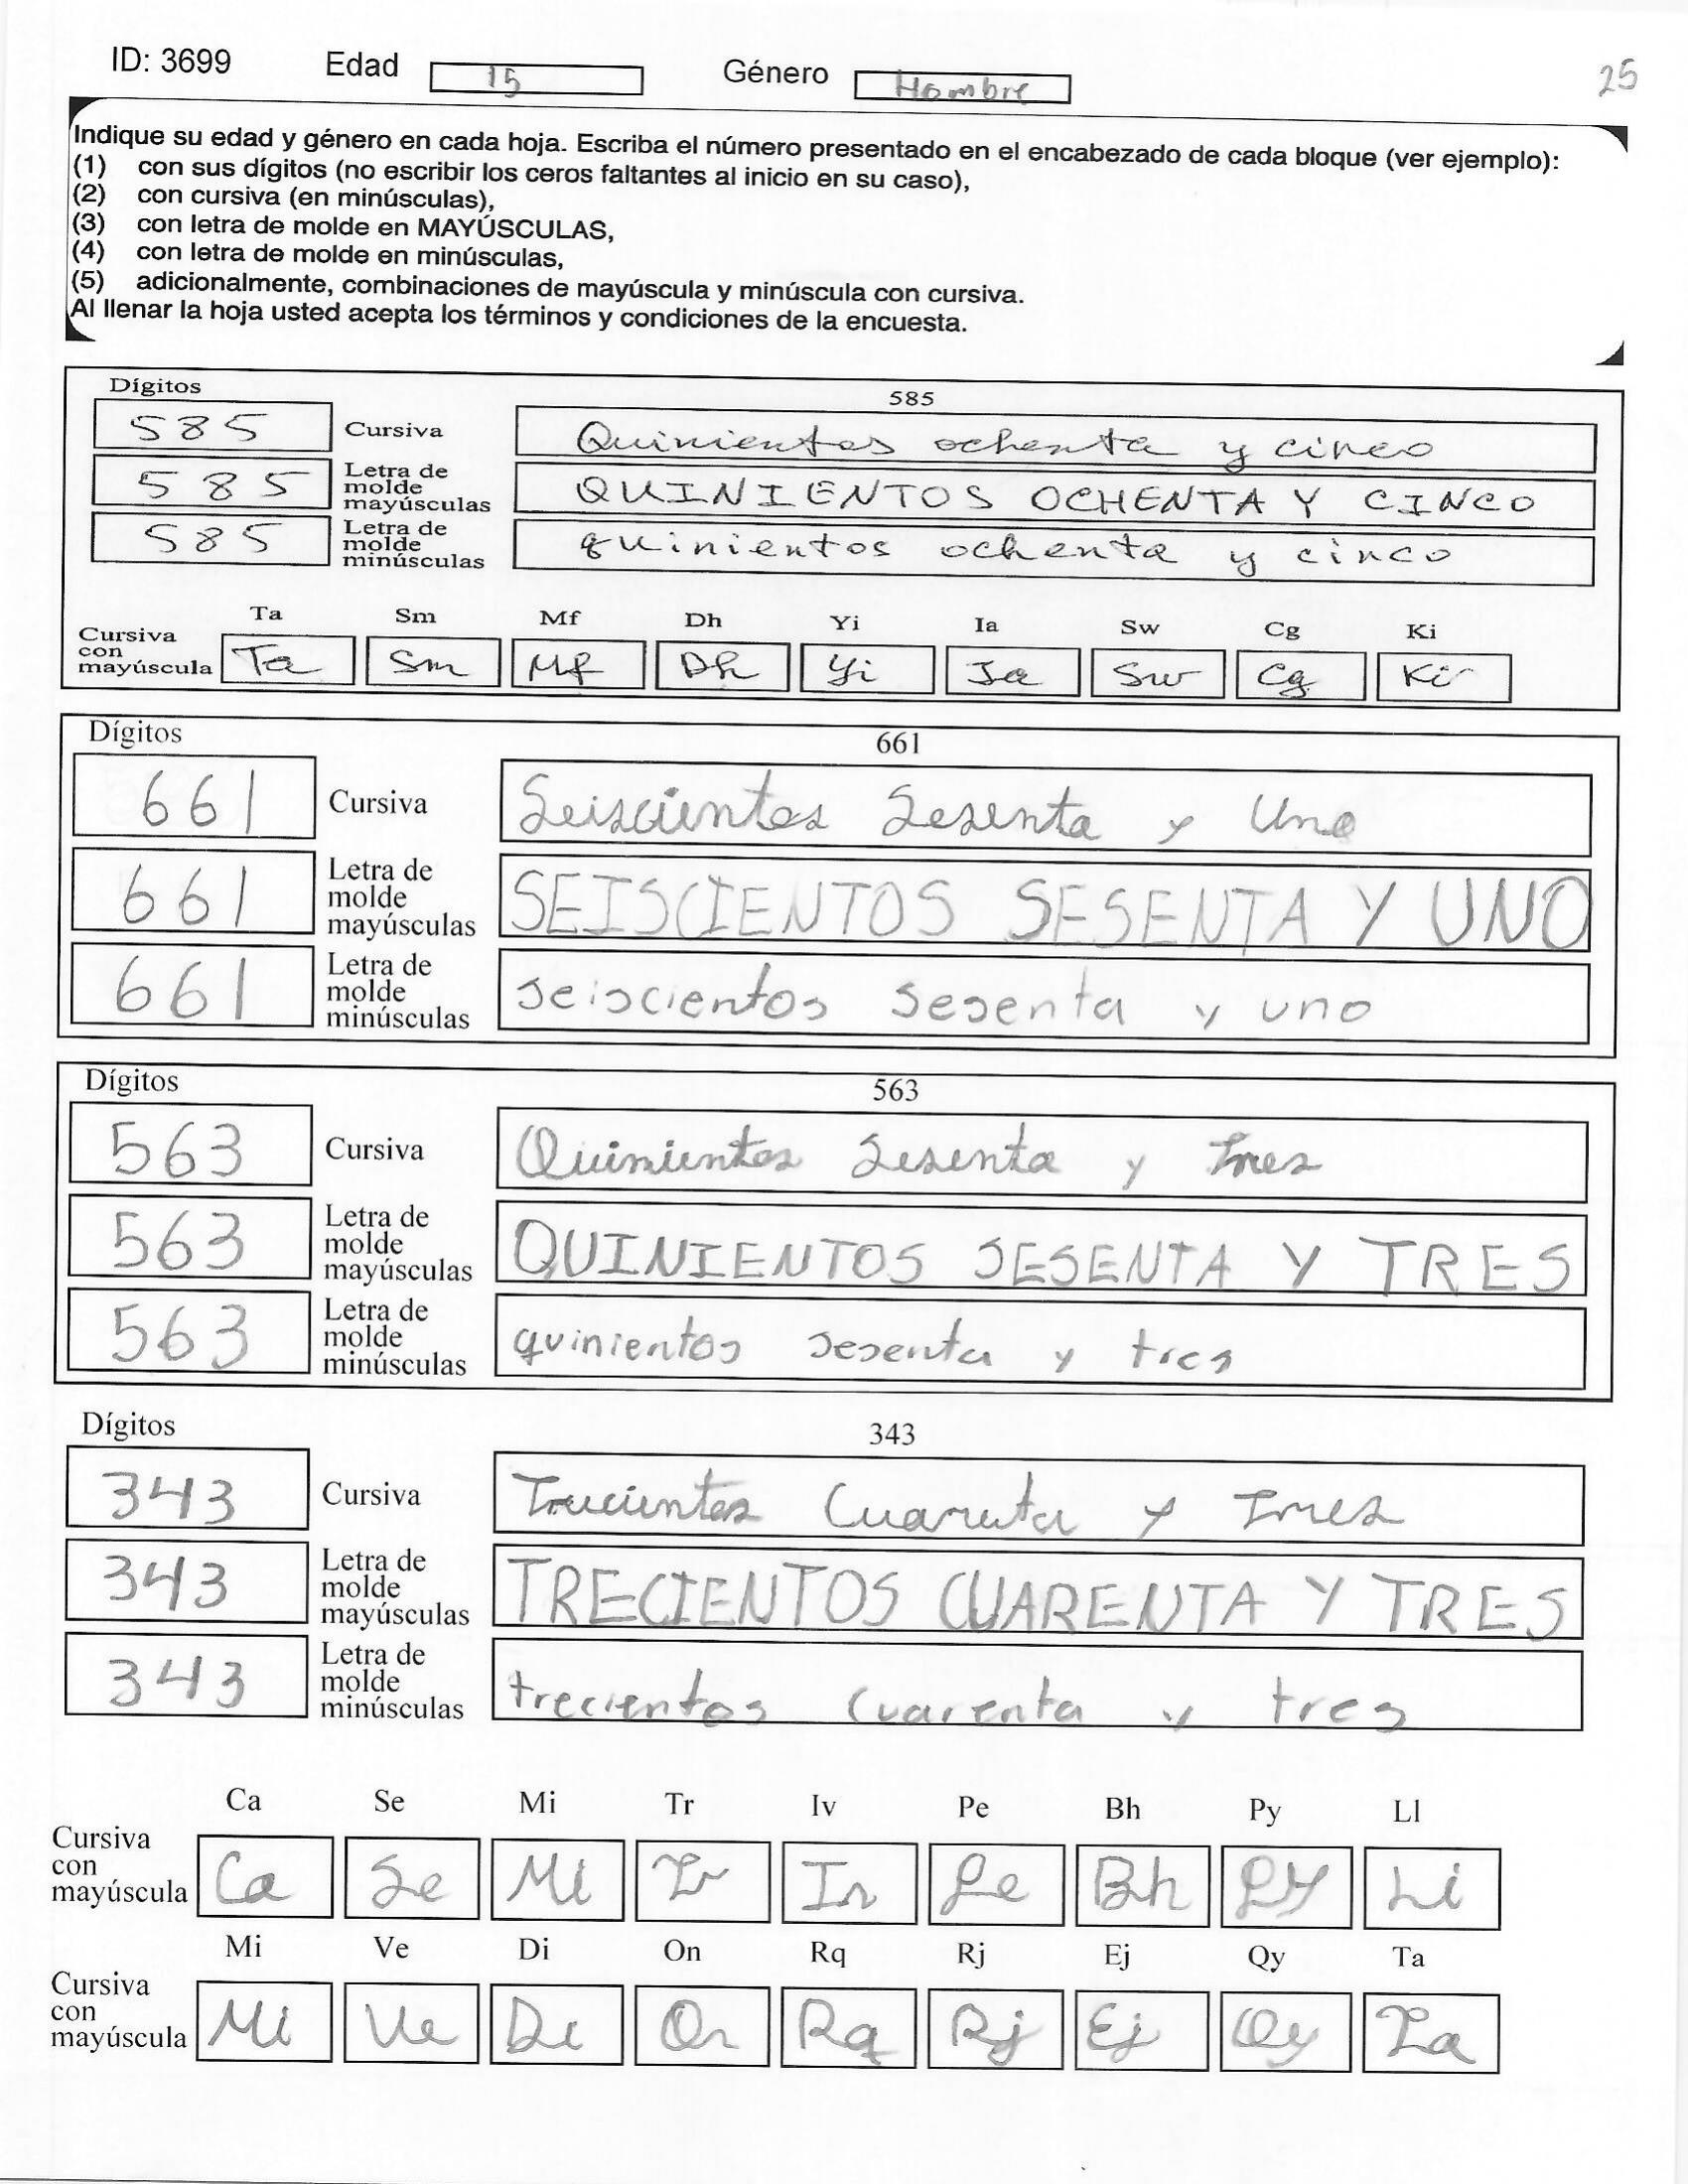 ID: 3699 Edad 15 Género Hombre 25
Indique su edad y género en cada hoja. Escriba el número presentado en el encabezado de cada bloque (ver ejemplo):
(1) con sus dígitos (no escribir los ceros faltantes al inicio en su caso),
(2) con cursiva (en minúsculas),
(3) con letra de molde en MAYÚSCULAS,
(4) con letra de molde en minúsculas,
(5) adicionalmente, combinaciones de mayúscula y minúscula con cursiva.
Al llenar la hoja usted acepta los términos y condiciones de la encuesta.
Dígitos 585
585 Cursiva Quinientos ochenta y cinco
585 Letra de molde mayúsculas QUINIENTOS OCHENTA Y CINCO
585 Letra de molde minúsculas quinientos ochenta y cinco
Ta Sm Mf Dh Yi Ia Sw Cg Ki
Cursiva con mayúscula Ta Sm Mf Dh Yi Ia Sw Cg Ki
Dígitos 661
661 Cursiva Seiscientos Sesenta y Uno
661 Letra de molde mayúsculas SEISCIENTOS SESENTA Y UNO
661 Letra de molde minúsculas seiscientos sesenta y uno
Dígitos 563
563 Cursiva Quinientos Sesenta y Tres
563 Letra de molde mayúsculas QUINIENTOS SESENTA Y TRES
563 Letra de molde minúsculas quinientos sesenta y tres
Dígitos 343
343 Cursiva Trecientos Cuareta y Tres
343 Letra de molde mayúsculas TRECIENTOS CUARENTA Y TRES
343 Letra de molde minúsculas trecientos cuarenta y tres
Ca Se Mi Tr Iv Pe Bh Py Ll
Cursiva con mayúscula Ca Se Mi Tr Iv Pe Bh PY Li
Mi Ve Di On Rq Rj Ej Qy Ta
Cursiva con mayúscula Mi Ve Di On Rq Rj Ej Qy Ta